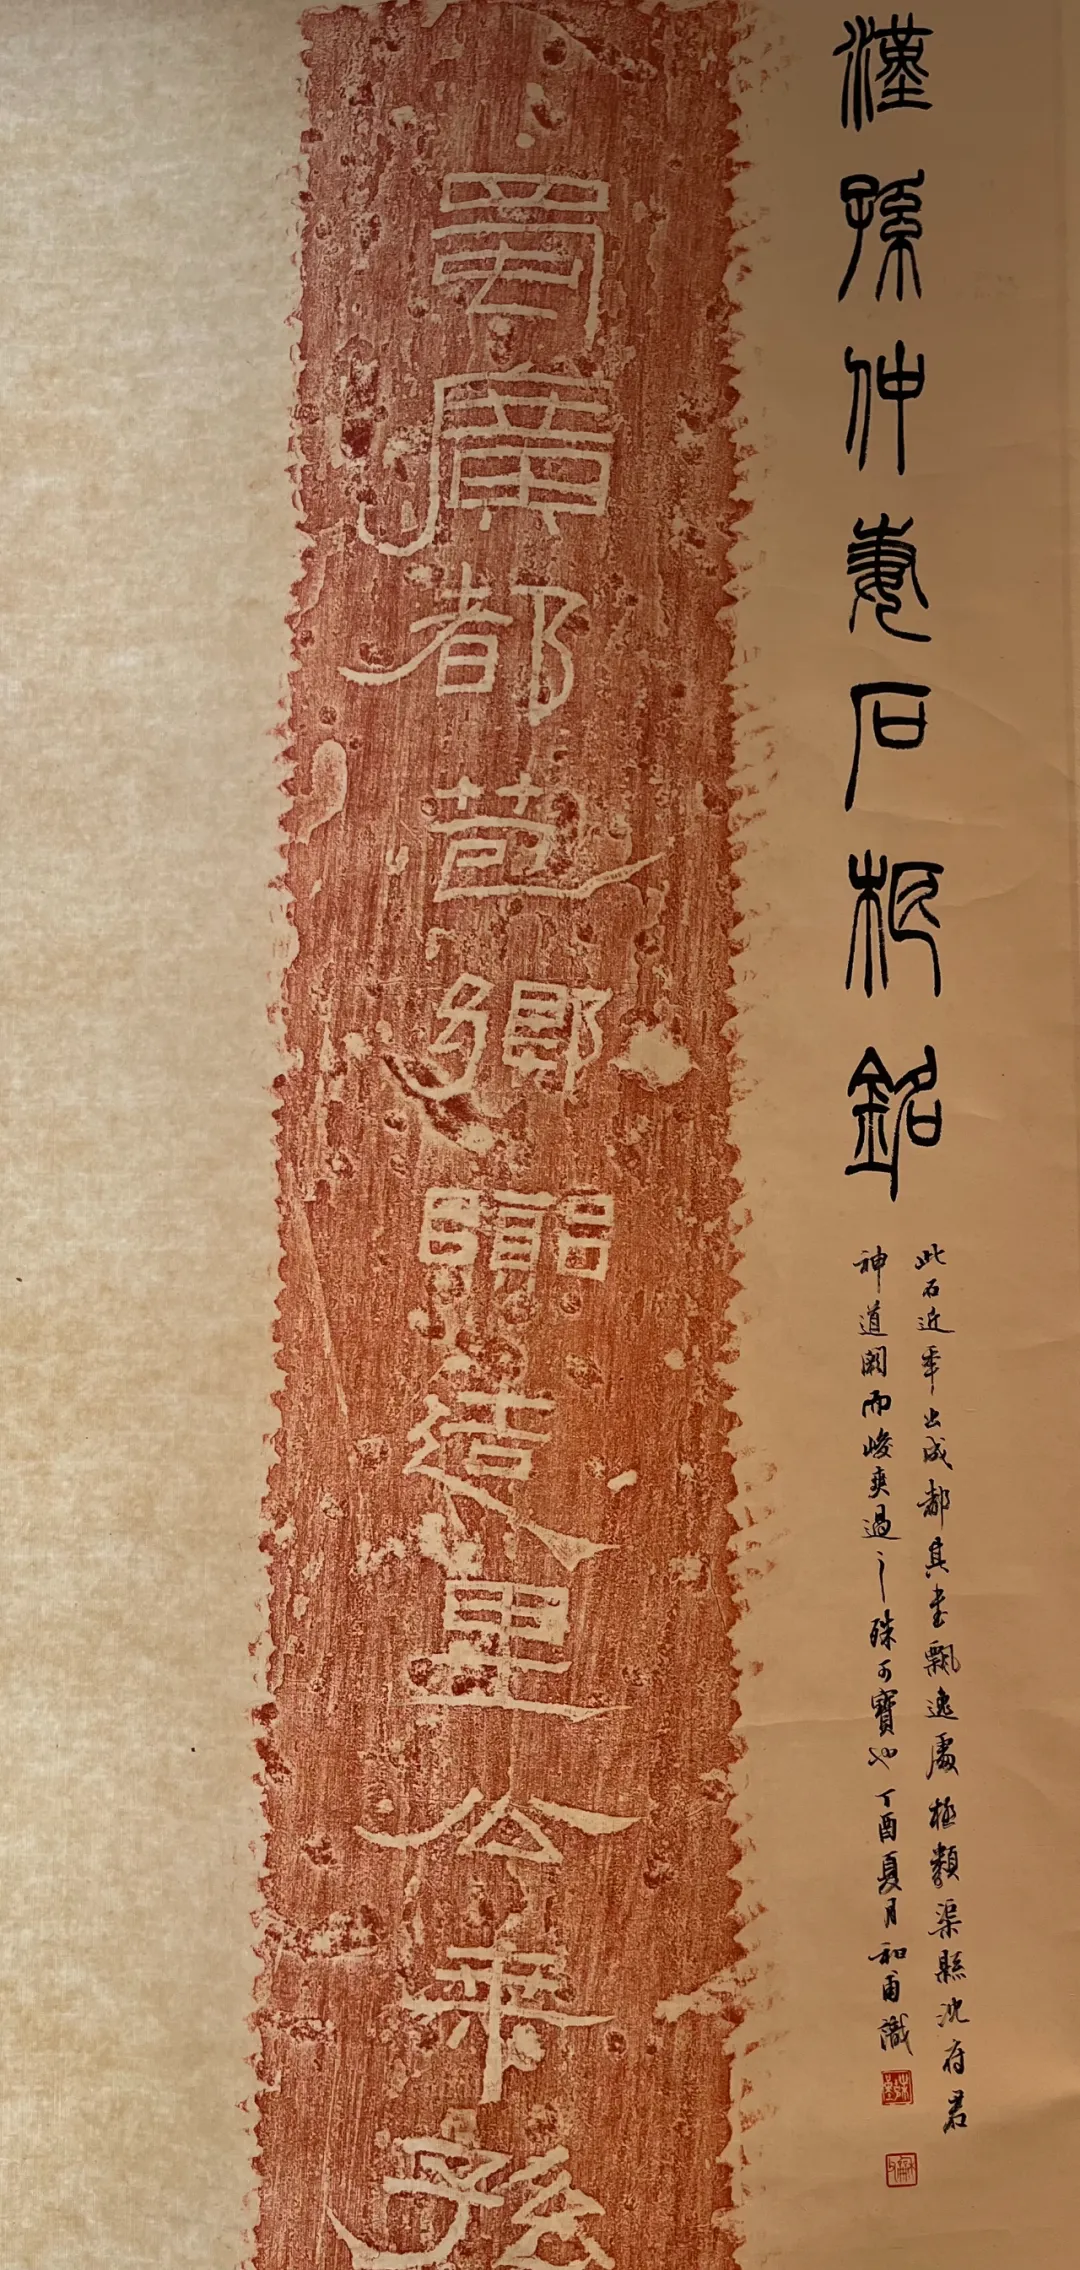 漢孫仲妻石柢銘
此石近年出成都其書飄逸處極類渠縣沈府君
神道闕而峻爽過之殊可寶也丁酉夏月和甫識
蜀廣都鄉造里公乘孫